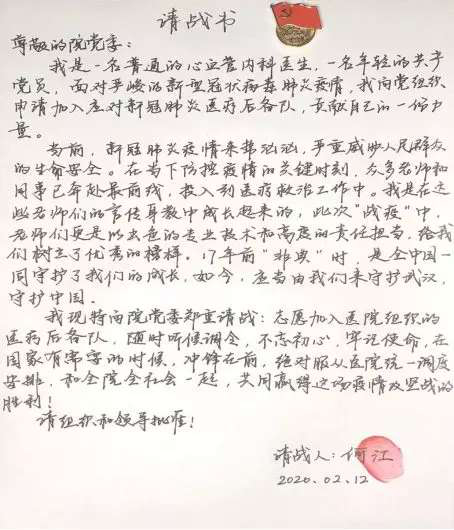 请战书
尊敬的院党委：
我是一名普通的心血管内科医生，一名年轻的共产
党员，面对严峻的新型冠状病毒肺炎疫情，我向党组织
申请加入应对新冠肺炎医疗后备队，贡献自己的一份力
量。
当前，新冠肺炎疫情来势汹汹，严重威胁人民群众
的生命安全。在当下防控疫情的关键时刻，众多老师和
同事已奔赴最前线，投入到医疗救治工作中。我是在这
些老师们的言传身教中成长起来的，此次"战疫"中，
老师们更是以出色的专业技术和高度的责任担当，给我
们树立了优秀的榜样。17年前"非典"时，是全中国一
同守护了我们的成长，如今，应当由我们来守护武汉，
守护中国。
我现特向院党委郑重请战：志愿加入医院组织的
医疗后备队，随时听候调令，不忘初心，牢记使命，在
国家有需要的时候，冲锋在前，绝对服从医院统一调度
安排，和全院全社会一起，共同赢得这场疫情攻坚战的
胜利！
请组织和领导批准！
请战人：何江
2020.02.12